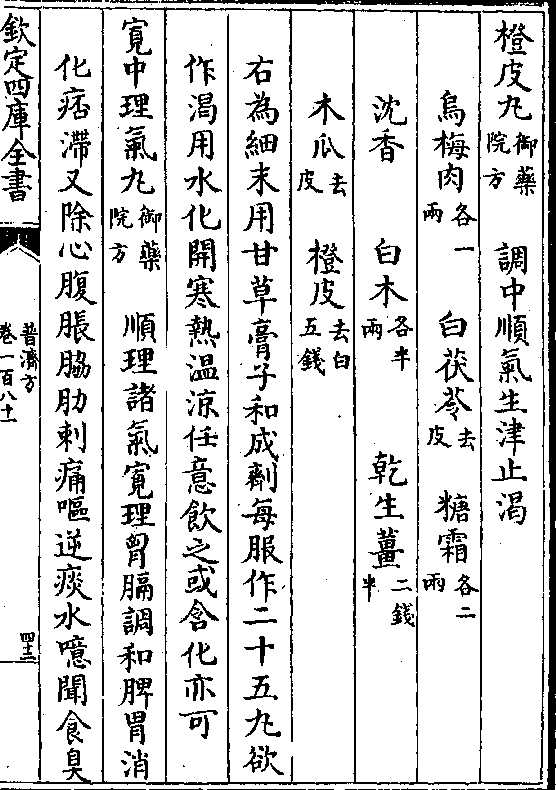 橙皮丸御藥院方 調中順氣生津止渴
烏梅肉各一兩 白茯苓去皮 糖霜各二兩
沈香 白木各半兩 乾生薑二錢半
木瓜去皮 橙皮去白五錢
右為細末用甘草膏子和成劑每服作二十五丸欲
作渴用水化開寒熱温涼任意飲之或含化亦可
寛中理氣丸御藥院方 順理諸氣寛理胷膈調和脾胃消
化痞滯又除心腹脹脇肋刺痛嘔逆痰水噫聞食臭
欽定四庫全書
普濟方
卷一百八十一